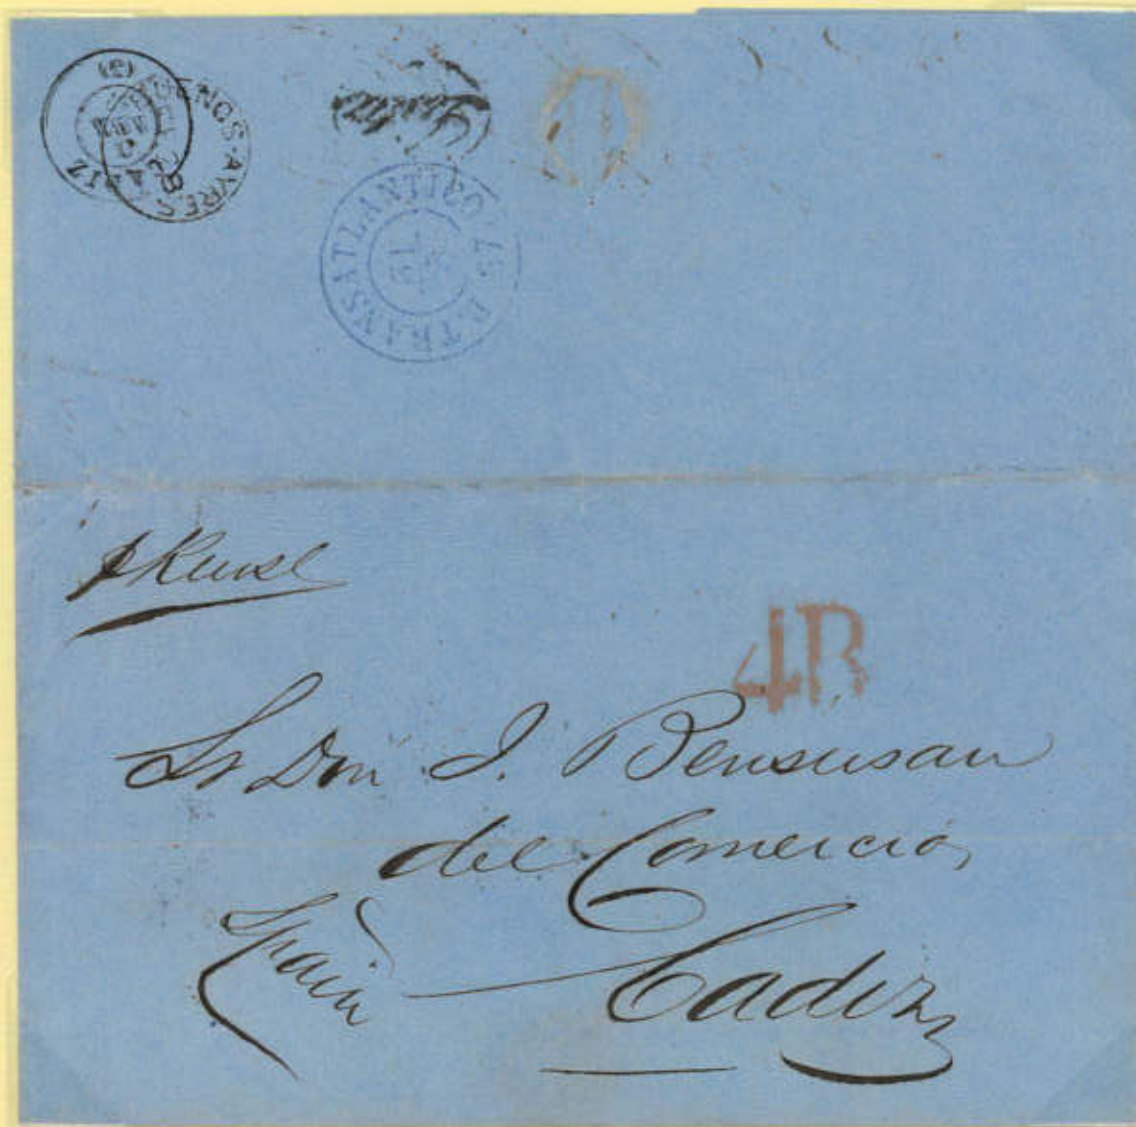 BUENOS-AYRES
28
CADIZ
P. TRANSATLANTICO
4R
Sr Don J. Bensusan
del Comercio,
Spain
Cadiz